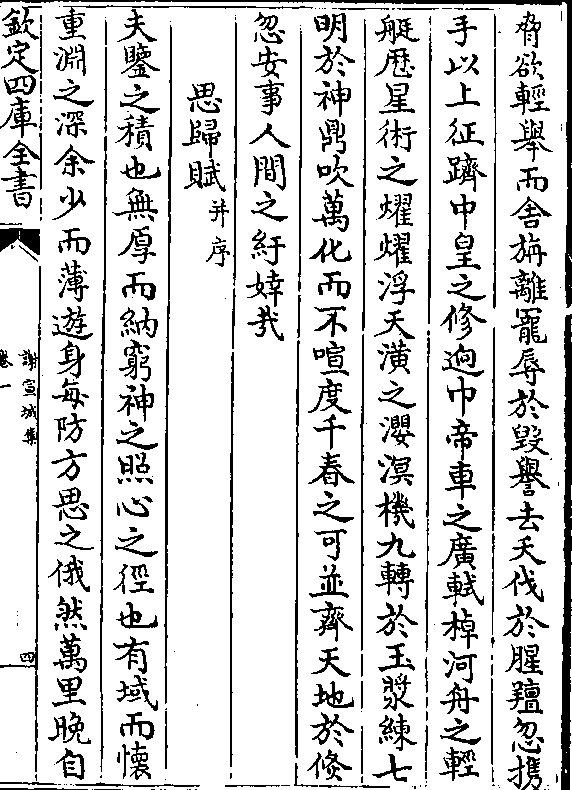 脅欲輕舉而舍旃離寵辱於毀譽去夭伐於腥羶忽攜
手以上征躋中皇之修迥巾帝車之廣軾棹河舟之輕
艇歴星術之燿燿浮天潢之灣溟機九轉於玉漿練七
明於神鼎吹萬化而不喧度千春之可並齊天地於倏
忽安事人間之紆婞哉
思歸賦并序
夫鑒之積也無厚而納窮神之照心之徑也有域而懷
重淵之深余少而薄遊身每防方思之俄然萬里晚自
欽定四庫全書
謝宣城集
卷一
四